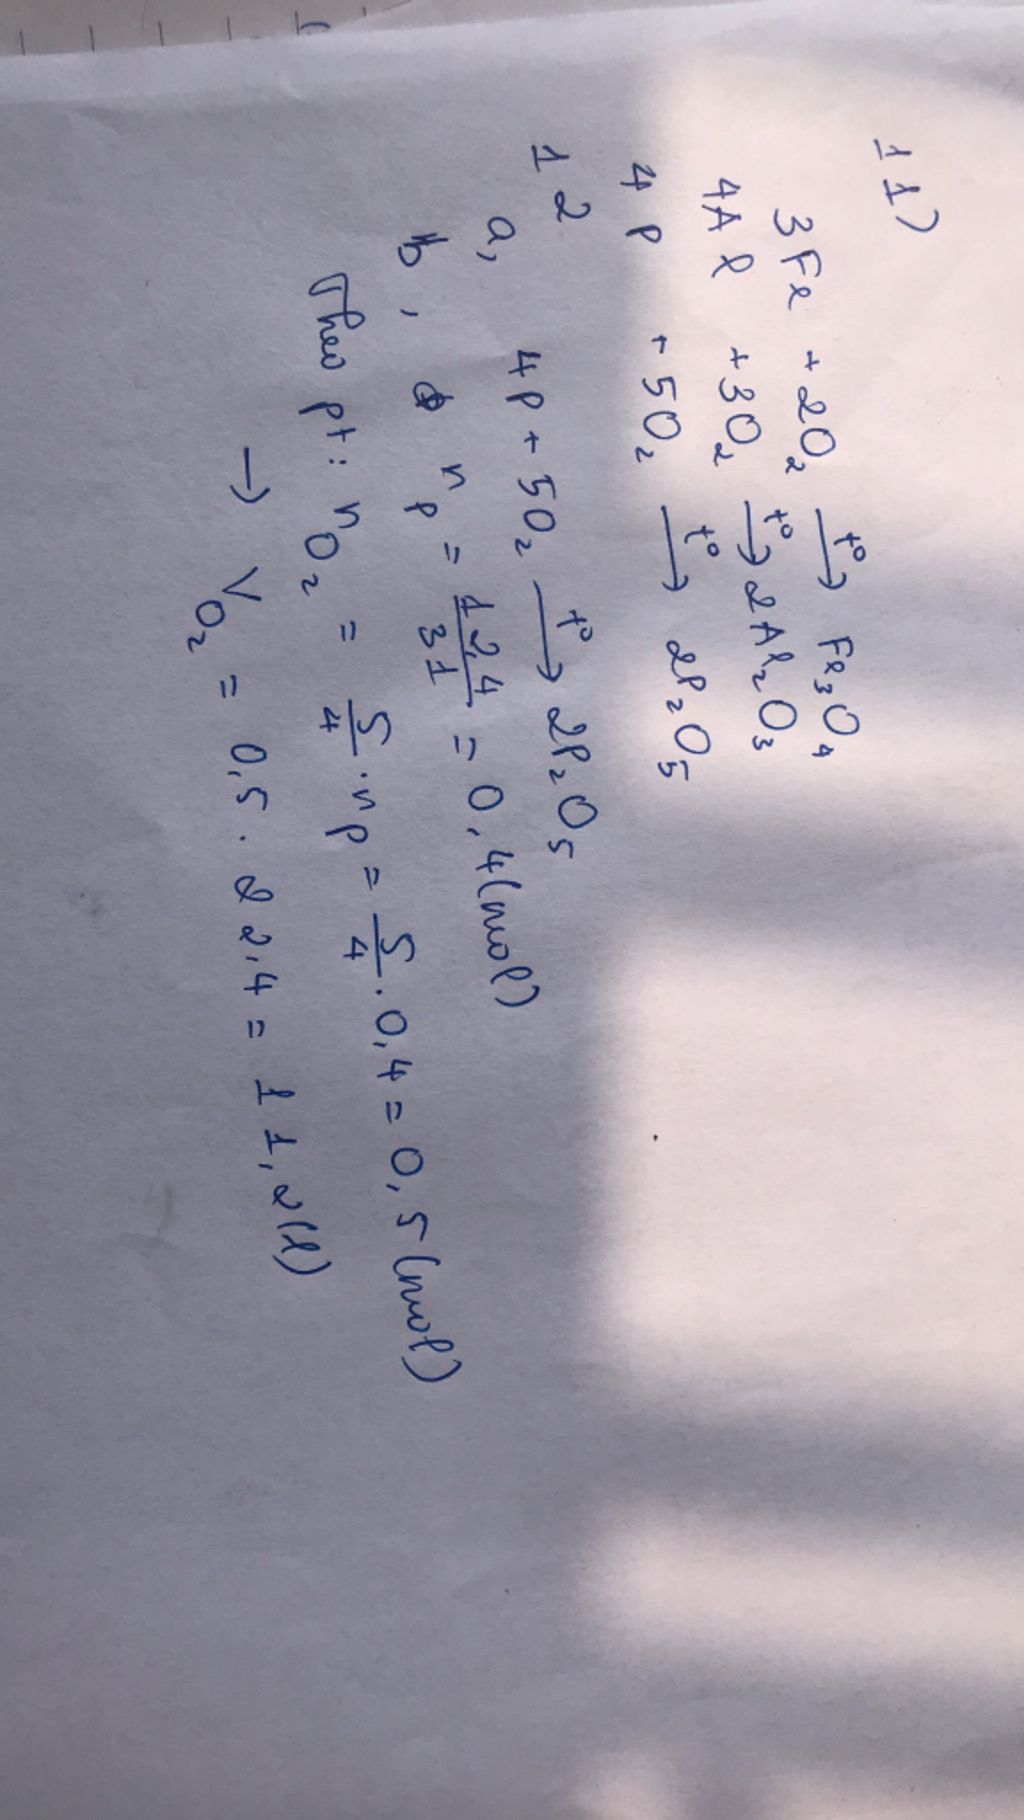 11)
3Fe + 2O₂ t°→ Fe₃O₄
4Al + 3O₂ t°→ 2Al₂O₃
4P + 5O₂ t°→ 2P₂O₅
12
a, 4P + 5O₂ t°→ 2P₂O₅
b, nₚ = 12,4/31 = 0,4(mol)
Theo pt: nO₂ = 5/4 . nₚ = 5/4 . 0,4 = 0,5(mol)
→ VO₂ = 0,5 . 22,4 = 11,2(l)